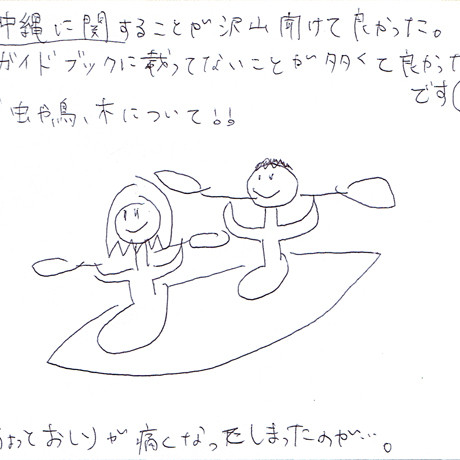 沖縄に関することが沢山聞けて良かった。
ガイドブックに載ってないことが多くて良かった
です(
虫や鳥、木について!!
ちょっとおしりが痛くなってしまったのが…。